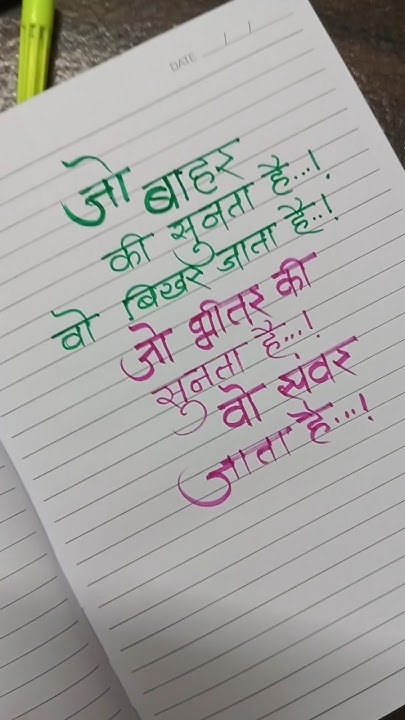 DATE / /
जो बाहर
की सुनता है...!
वो बिखर जाता है..!
जो भीतर की
सुनता है...!
वो संवर
जाता है...!